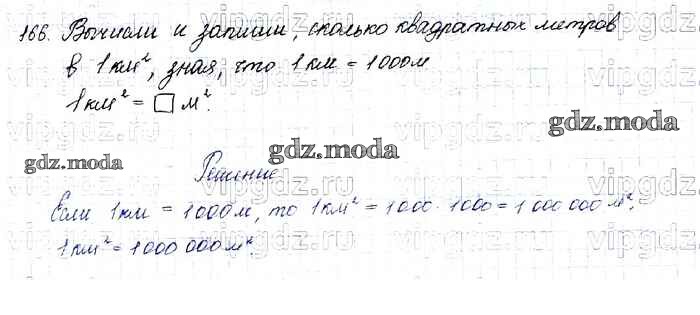 166. Вычисли и запиши, сколько квадратных метров
в 1 км², зная, что 1 км = 1000м
1 км² = □ м².
gdz.moda
gdz.moda
gdz.moda
Решение
Если 1км = 1000м, то 1км² = 1000·1000 = 1 000 000м².
1км² = 1000 000м².
vipgdz